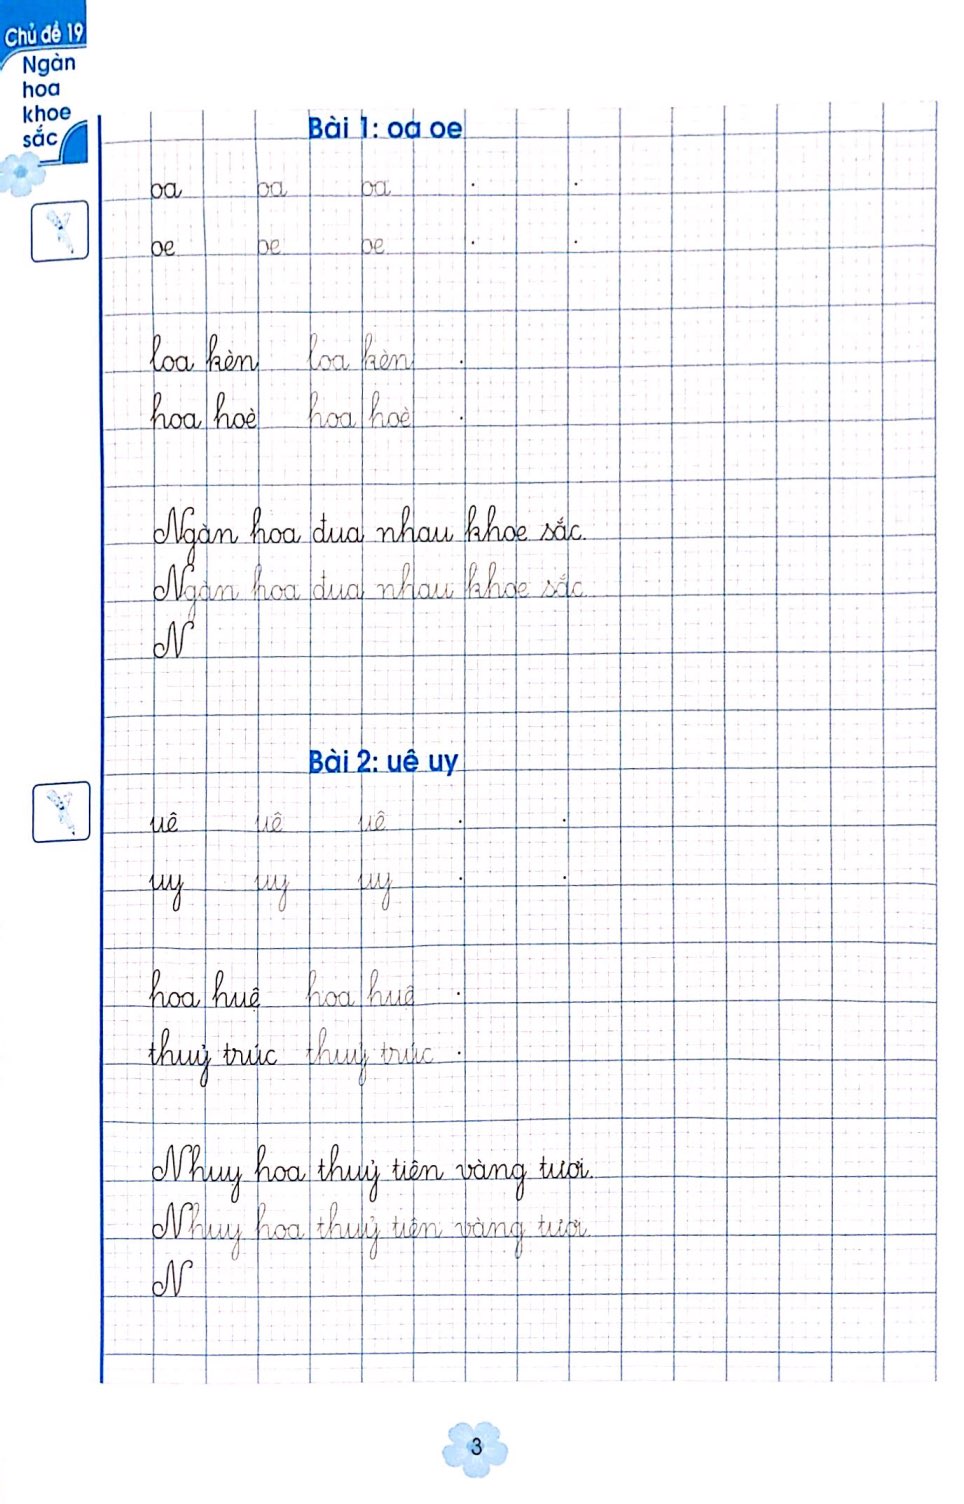 Chủ đề 19
Ngàn
hoa
khoe
sắc
Bài 1: oa oe
oa oa oa
oe oe oe
loa kèn loa kèn
hoa hoè hoa hoè
Ngàn hoa đua nhau khoe sắc.
Ngàn hoa đua nhau khoe sắc.
N
Bài 2: uê uy
uê uê uê
uy uy uy
hoa huệ hoa huệ
thuỷ trúc thuỷ trúc
Nhuỵ hoa thuỷ tiên vàng tươi.
Nhuỵ hoa thuỷ tiên vàng tươi.
N
3